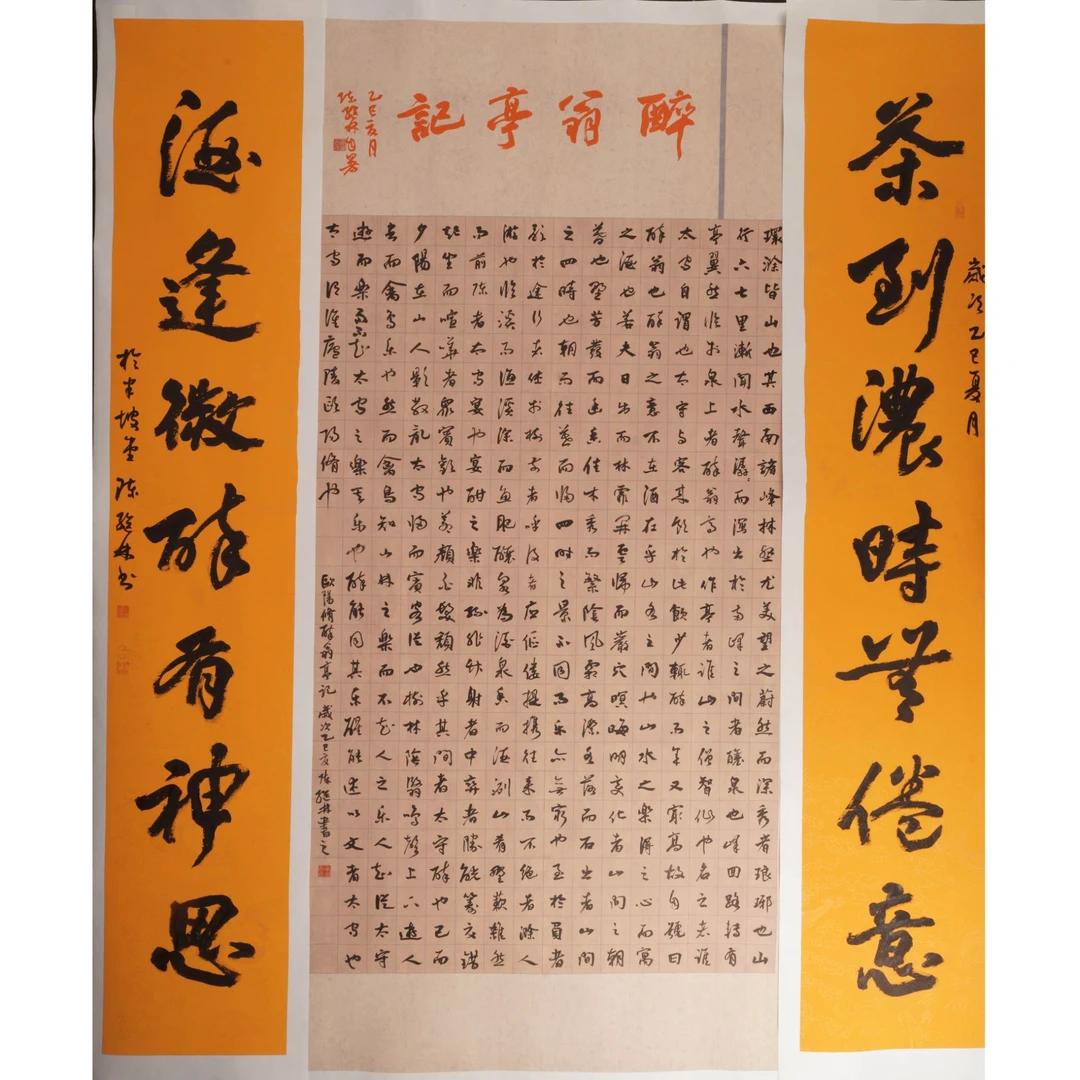 茶到濃時無倦意
歲次乙巳夏月
醉翁亭記
乙巳亥月
陳繼林自署
環滁皆山也其西南諸峰林壑尤美望之蔚然而深秀者琅琊也山
行六七里漸聞水聲潺〻而瀉出於兩峰之間者釀泉也峰回路轉有
亭翼然臨於泉上者醉翁亭也作亭者誰山之僧智仙也名之者誰
太守自謂也太守与客來飲於此飲少輒醉而年又最高故自號曰
醉翁也醉翁之意不在酒在乎山水之間也山水之樂得之心而寓
之酒也若夫日出而林霏開雲歸而巖穴暝晦明變化者山間之朝
暮也野芳發而幽香佳木秀而繁陰風霜高潔水落而石出者山間
之四時也朝而往暮而歸四時之景不同而樂亦無窮也至於負者
歌於途行者休於樹前者呼後者應傴僂提攜往來而不絕者滁人
遊也臨溪而漁溪深而魚肥釀泉為酒泉香而酒洌山肴野蔌雜然
而前陳者太守宴也宴酣之樂非絲非竹射者中弈者勝觥籌交錯
起坐而喧嘩者眾賓歡也蒼顏白髮頹然乎其間者太守醉也已而
夕陽在山人影散亂太守歸而賓客從也樹林陰翳鳴聲上下遊人
去而禽鳥樂也然而禽鳥知山林之樂而不知人之樂人知從太守
遊而樂而不知太守之樂其樂也醉能同其樂醒能述以文者太守也
太守謂誰廬陵歐陽脩也
歐陽脩醉翁亭記 歲次乙巳亥陳繼林書之
酒逢微醉有神思
於半坡堂陳繼林書